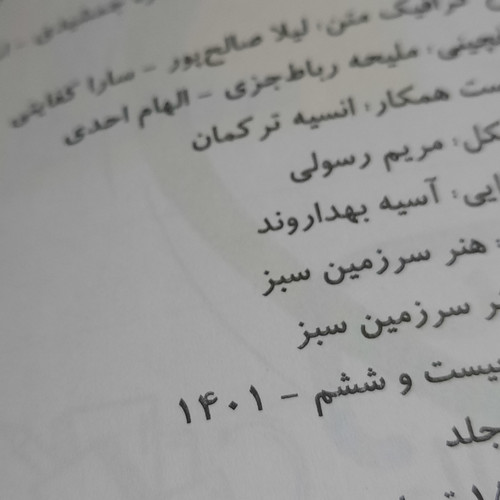 گرافیک متن: لیلا صالح‌پور - سارا کفایتی
ملیحه رباط‌جزی - الهام احدی
همکار: انسیه ترکمان
مریم رسولی
آسیه بهداروند
هنر سرزمین سبز
سرزمین سبز
و ششم - ۱۴۰۱
جلد